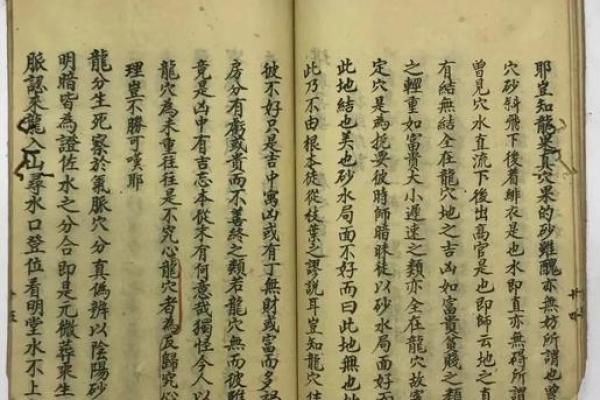 耶豈知龍果真穴果的砂雖醜亦無妨所謂也曾
穴砂斜飛下後着緋衣是也水即直亦無碍所謂
曾見穴水直流下後出高官是也即師云地之直
有結無結全在龍穴地之吉凶如富貴貧賤之類
之輕重如富貴大小遲速之類亦全在龍穴故富
定穴是為扼要彼時師暗昧徒以砂水局面好
此地結也美也砂水局面不好而曰此地無也
此乃不由根本徒從枝葉之謬說耳豈知龍穴佳
彼不好只是吉中寓凶或有丁無財或富而多
房分有虧或貴而不善終之類若龍穴無而彼雖
竟是凶中有吉忘本從末有何意哉獨怪今人以
龍穴為末重往往是不究心龍穴者為反歸究心
理豈不勝可嘆耶
龍分生死察於氣脈穴分真偽辨以陰陽砂
明暗皆為證佐水之分合即是元微葬乘生
脈認來龍入山尋水口登位看明堂水不上